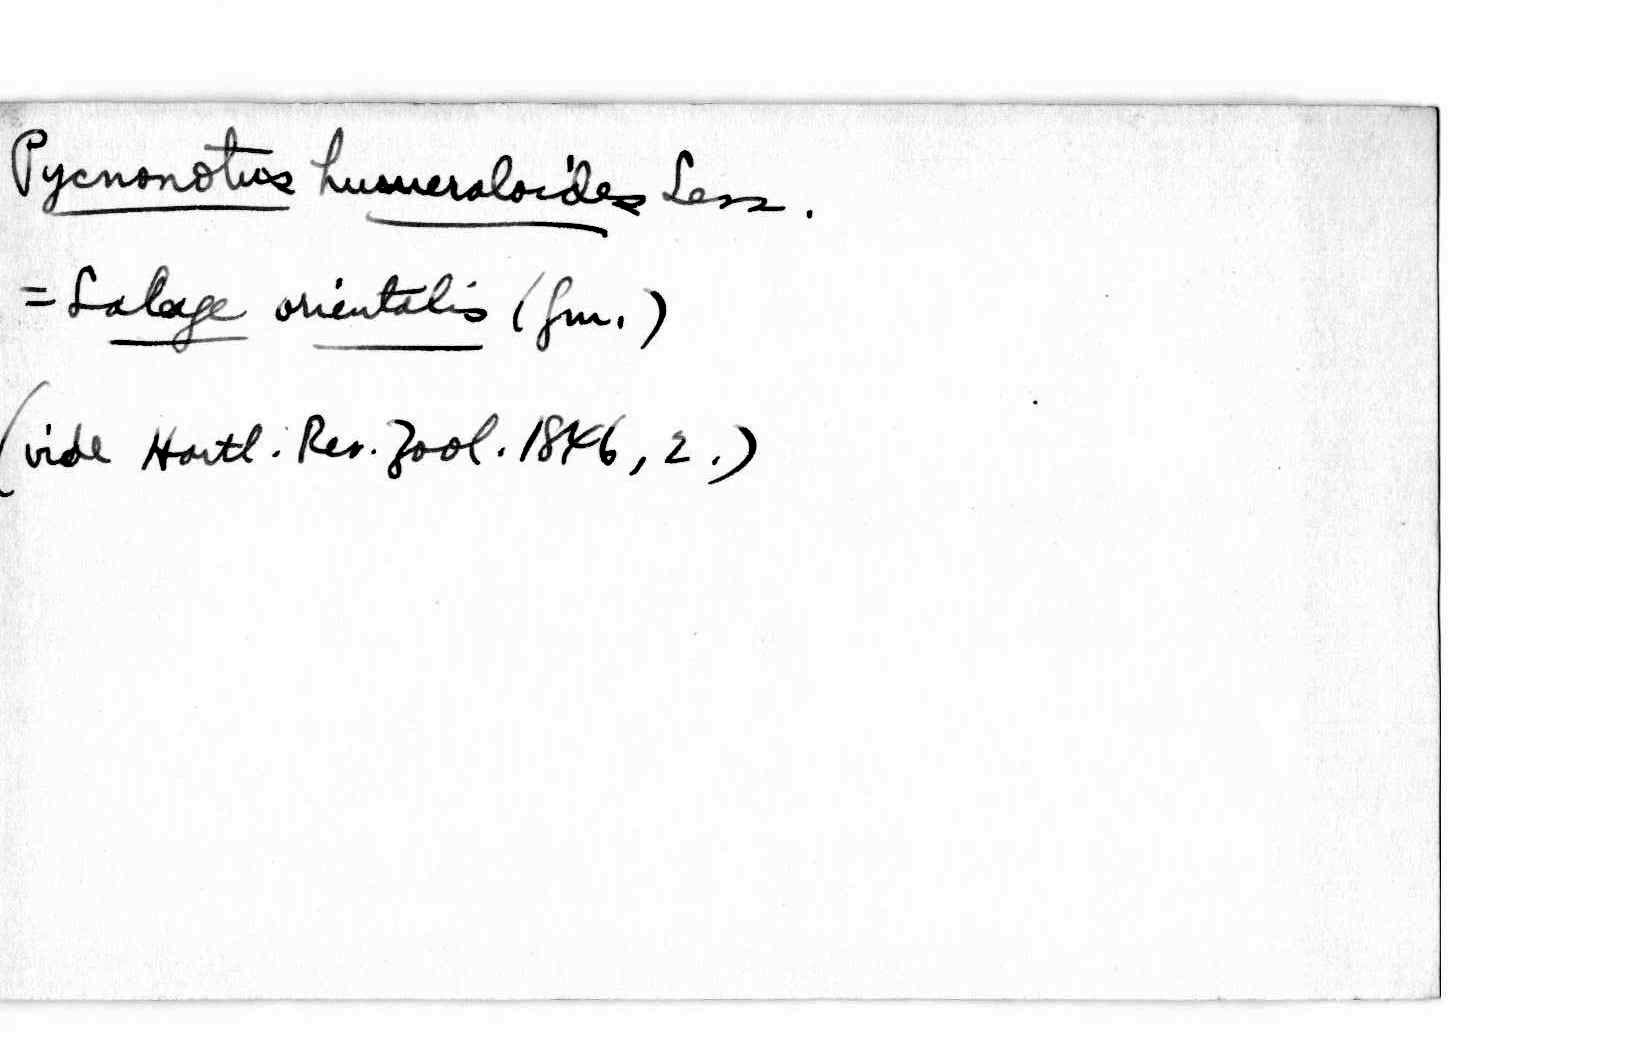 Pycnonotus humeraloides Less.
= Lalage orientalis (Gm.)
(vide Hartl. Rev. Zool. 1846, 2.)